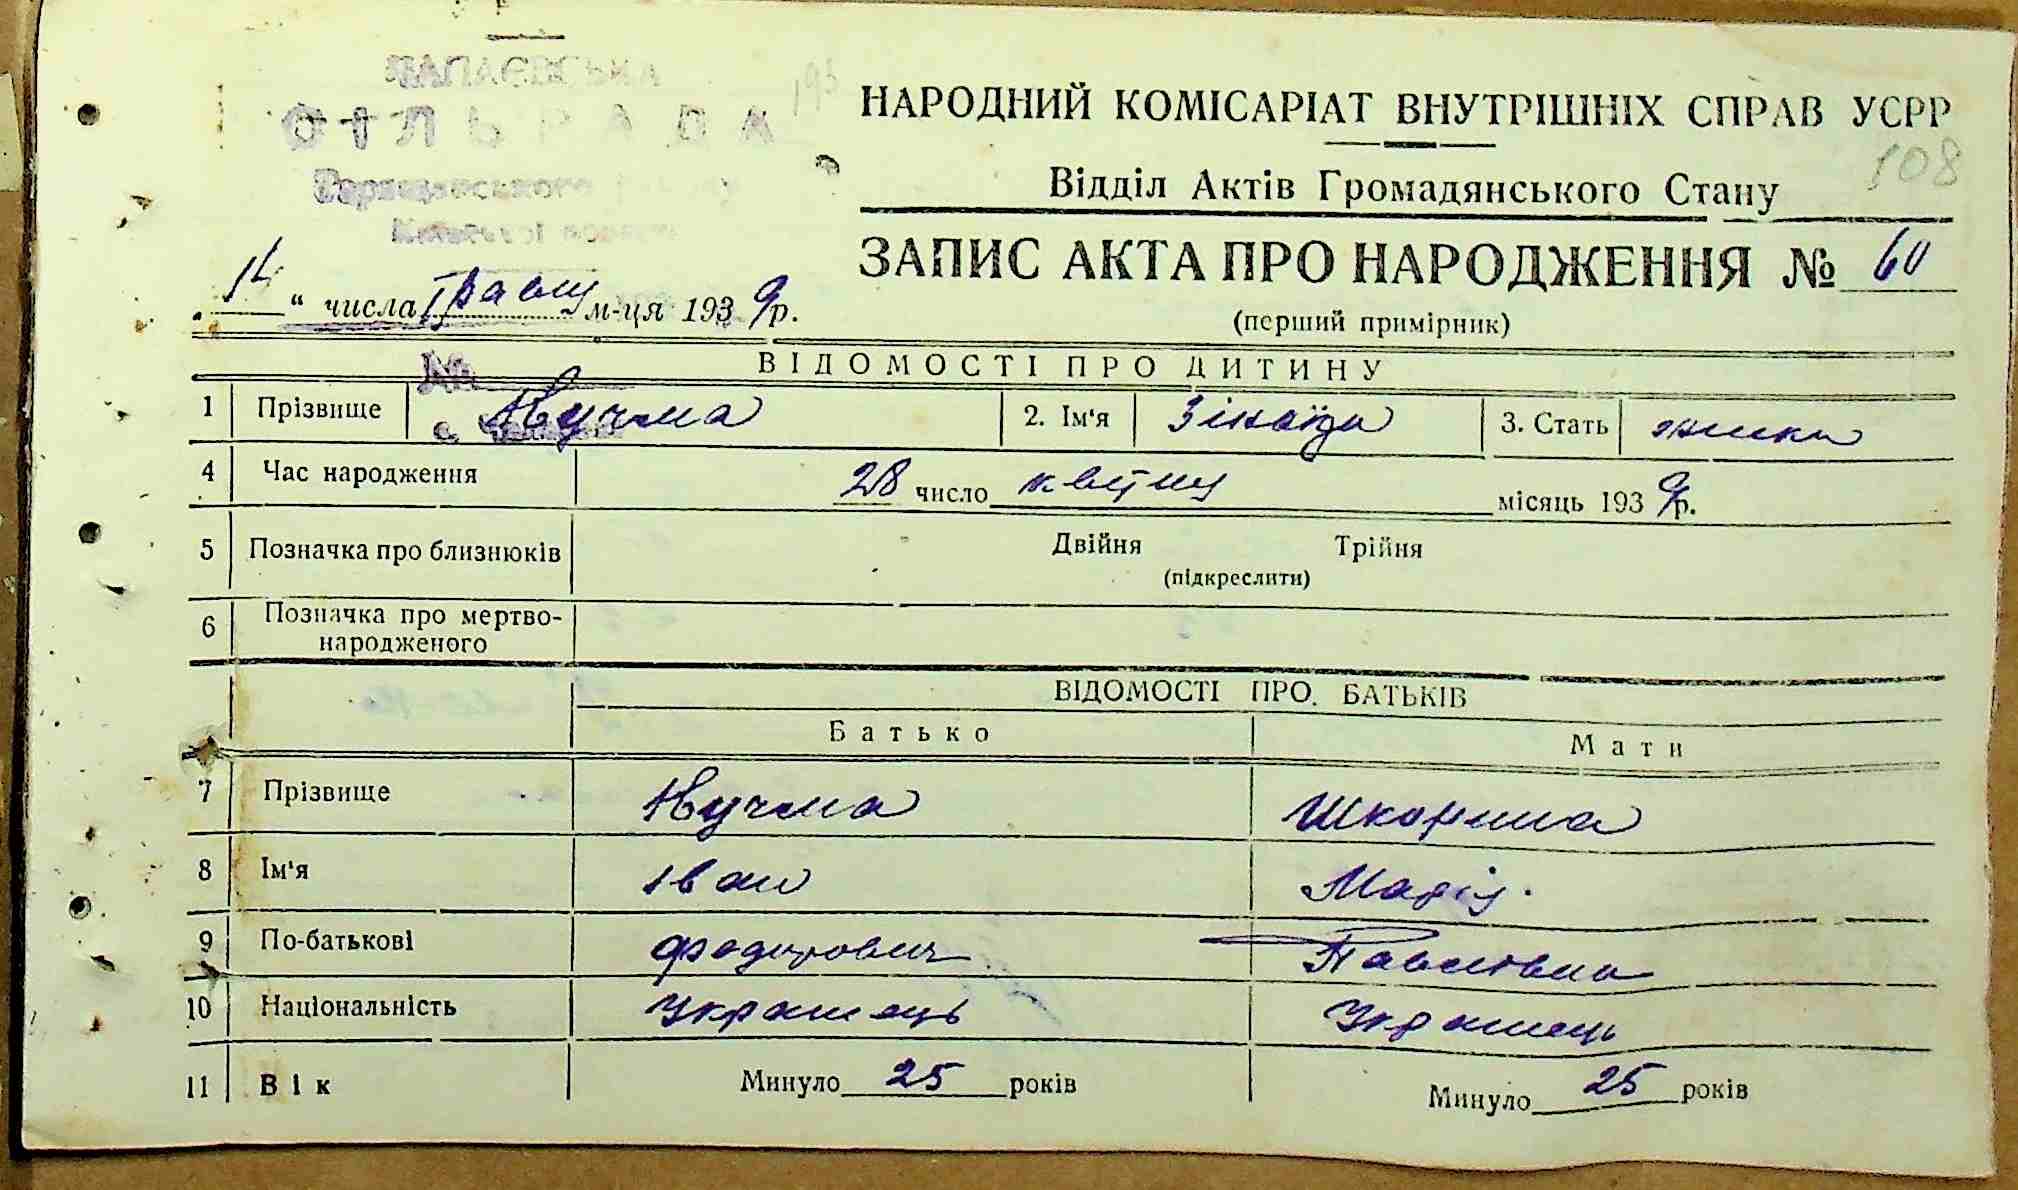 ЧАПАЄВСЬКА
СІЛЬРАДА
193
НАРОДНИЙ КОМІСАРІАТ ВНУТРІШНІХ СПРАВ УСРР
108
Відділ Актів Громадянського Стану
ЗАПИС АКТА ПРО НАРОДЖЕННЯ № 60
(перший примірник)
14 " числа Травня м-ця 1939 р.
№
ВІДОМОСТІ ПРО ДИТИНУ
1 Прізвище Кучма 2. Ім'я Зінаїда 3. Стать жінка
4 Час народження 28 число квітня місяць 1939 р.
5 Позначка про близнюків Двійня Трійня
(підкреслити)
6 Позначка про мертво-
народженого
ВІДОМОСТІ ПРО. БАТЬКІВ
Батько Мати
7 Прізвище Кучма
8 Ім'я Іван Марія.
9 По-батькові Федорович Павловна
10 Національність Українець Українець
11 Вік Минуло 25 років Минуло 25 років